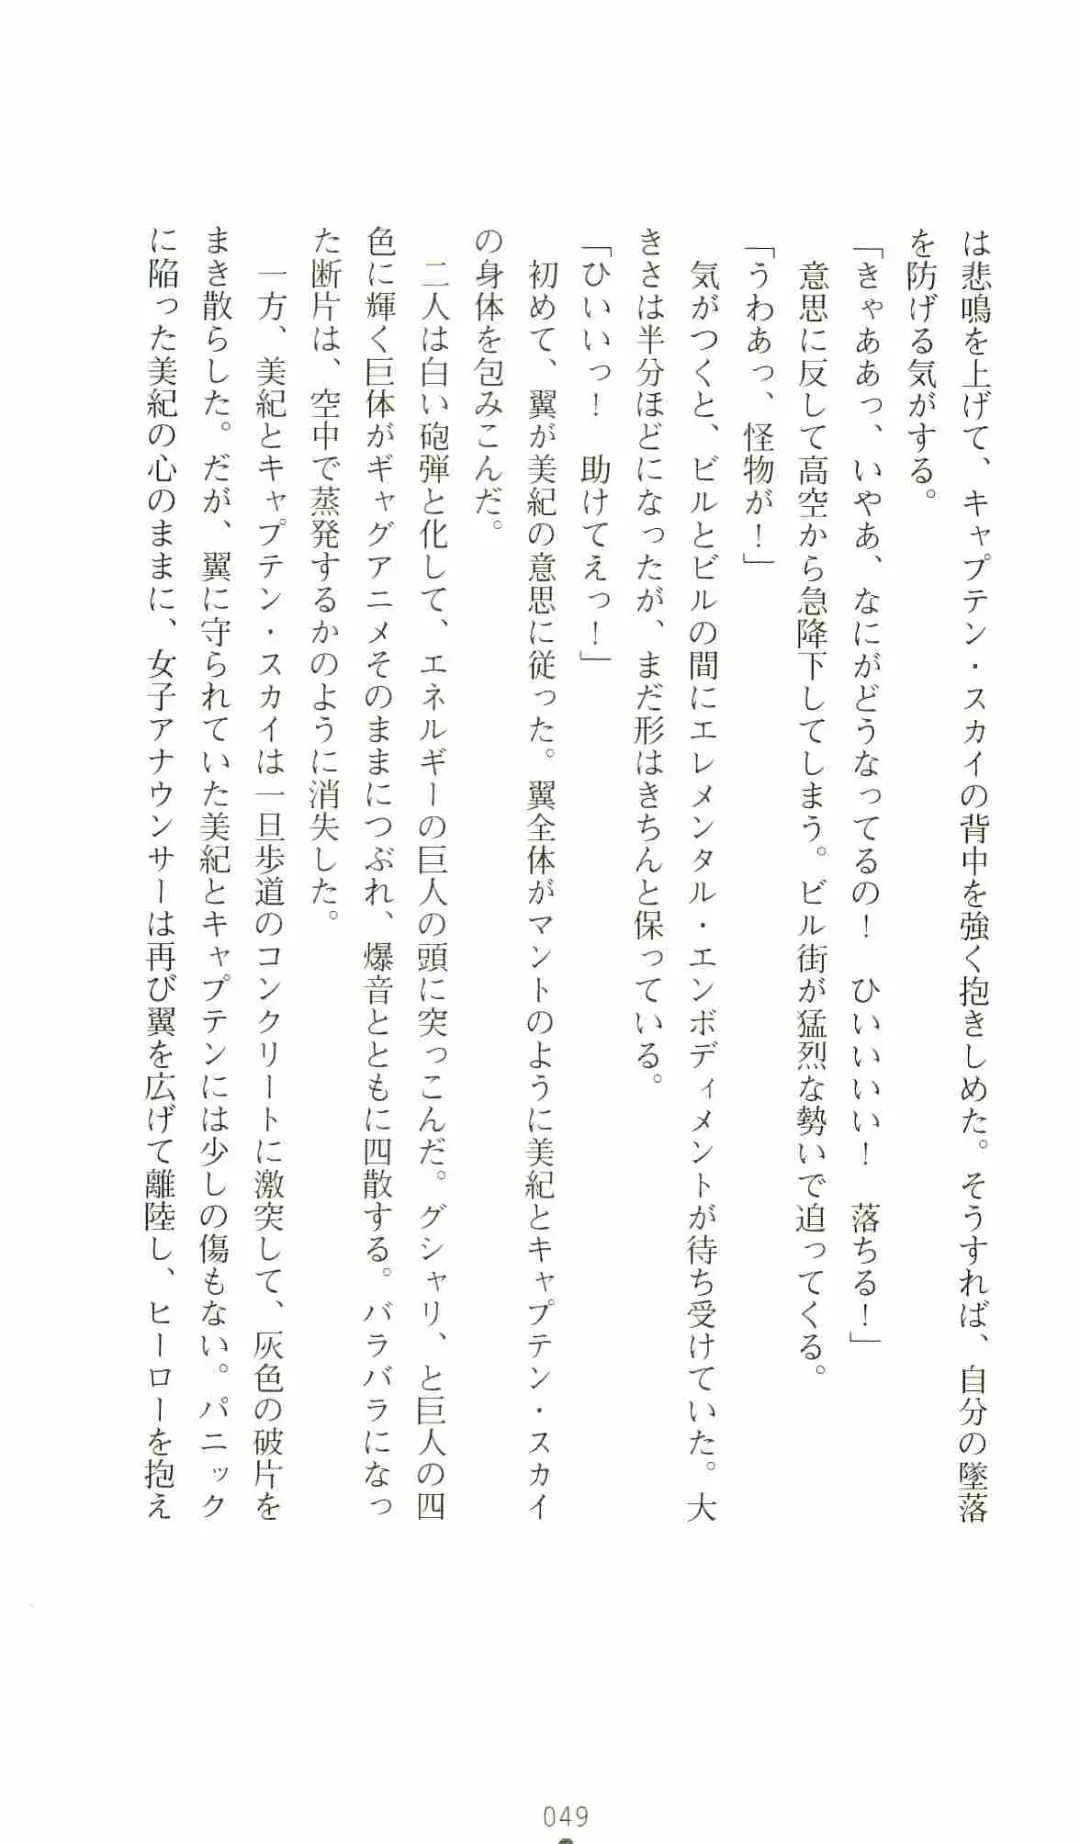 は悲鳴を上げて、キャプテン・スカイの背中を強く抱きしめた。そうすれば、自分の墜落
を防げる気がする。
「きゃああっ、いやあ、なにがどうなってるの！　ひいいいい！　落ちる！」
　意思に反して高空から急降下してしまう。ビル街が猛烈な勢いで迫ってくる。
「うわあっ、怪物が！」
　気がつくと、ビルとビルの間にエレメンタル・エンボディメントが待ち受けていた。大
きさは半分ほどになったが、まだ形はきちんと保っている。
「ひいいっ！　助けてえっ！」
　初めて、翼が美紀の意思に従った。翼全体がマントのように美紀とキャプテン・スカイ
の身体を包みこんだ。
　二人は白い砲弾と化して、エネルギーの巨人の頭に突っこんだ。グシャリ、と巨人の四
色に輝く巨体がギャグアニメそのままにつぶれ、爆音とともに四散する。バラバラになっ
た断片は、空中で蒸発するかのように消失した。
　一方、美紀とキャプテン・スカイは一旦歩道のコンクリートに激突して、灰色の破片を
まき散らした。だが、翼に守られていた美紀とキャプテンには少しの傷もない。パニック
に陥った美紀の心のままに、女子アナウンサーは再び翼を広げて離陸し、ヒーローを抱え
049